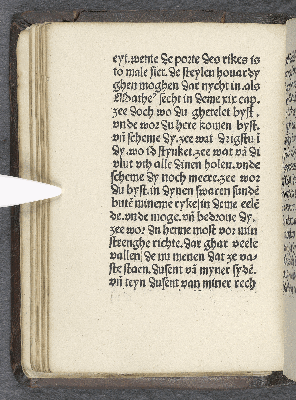 eyt. wente de porte des rikes is
to male sier. de steylen houardy
ghen moghen dar nycht in. als
Mathe⁹ secht in deme xix cap.
zee doch wo du ghetelet byst.
vnde wor du here komen byst.
vñ scheme dy. zee wat drigstu i
dy. wo id stynket. zee wat vā d
vlut vth alle dinen holen. vnde
scheme dy noch meere. zee wor
du byst. in dynen swaren sundē
butē mineme ryke in deme eelē
de. vnde moge. vñ bedroue dy.
zee wor du henne most vor min
strenghe richte. dar ghar veele
vallen de nu menen dat ze va-
ste staen. dusent vā myner sydē.
vñ teyn dusent van miner rech